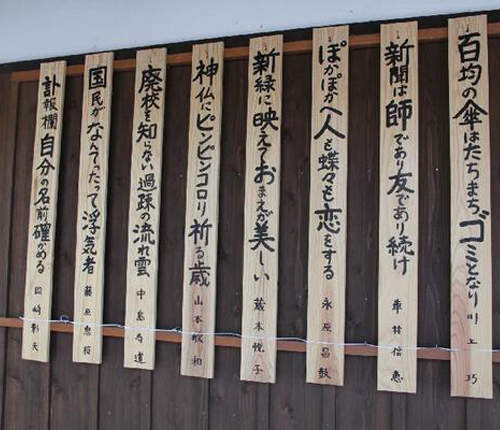 百均の傘はたちまちゴミとなり 川上 巧
新聞は師であり友であり続け 車林信恵
ぽかぽかへ人も蝶々も恋をする 永原昌鼓
新緑に映えておまえが美しい 蔵本悦子
神仏にピンピンコロリ祈る歳 山本敏和
廃校を知らない過疎の流れ雲 中島寿道
国民がなんてったって浮気者 藤原忠
訃報欄自分の名前確かめる 岡崎